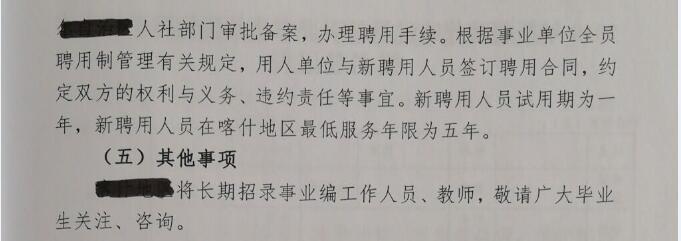 人社部门审批备案，办理聘用手续。根据事业单位全员
聘用制管理有关规定，用人单位与新聘用人员签订聘用合同，约
定双方的权利与义务、违约责任等事宜。新聘用人员试用期为一
年，新聘用人员在喀什地区最低服务年限为五年。
（五）其他事项
将长期招录事业编工作人员、教师，敬请广大毕业
生关注、咨询。